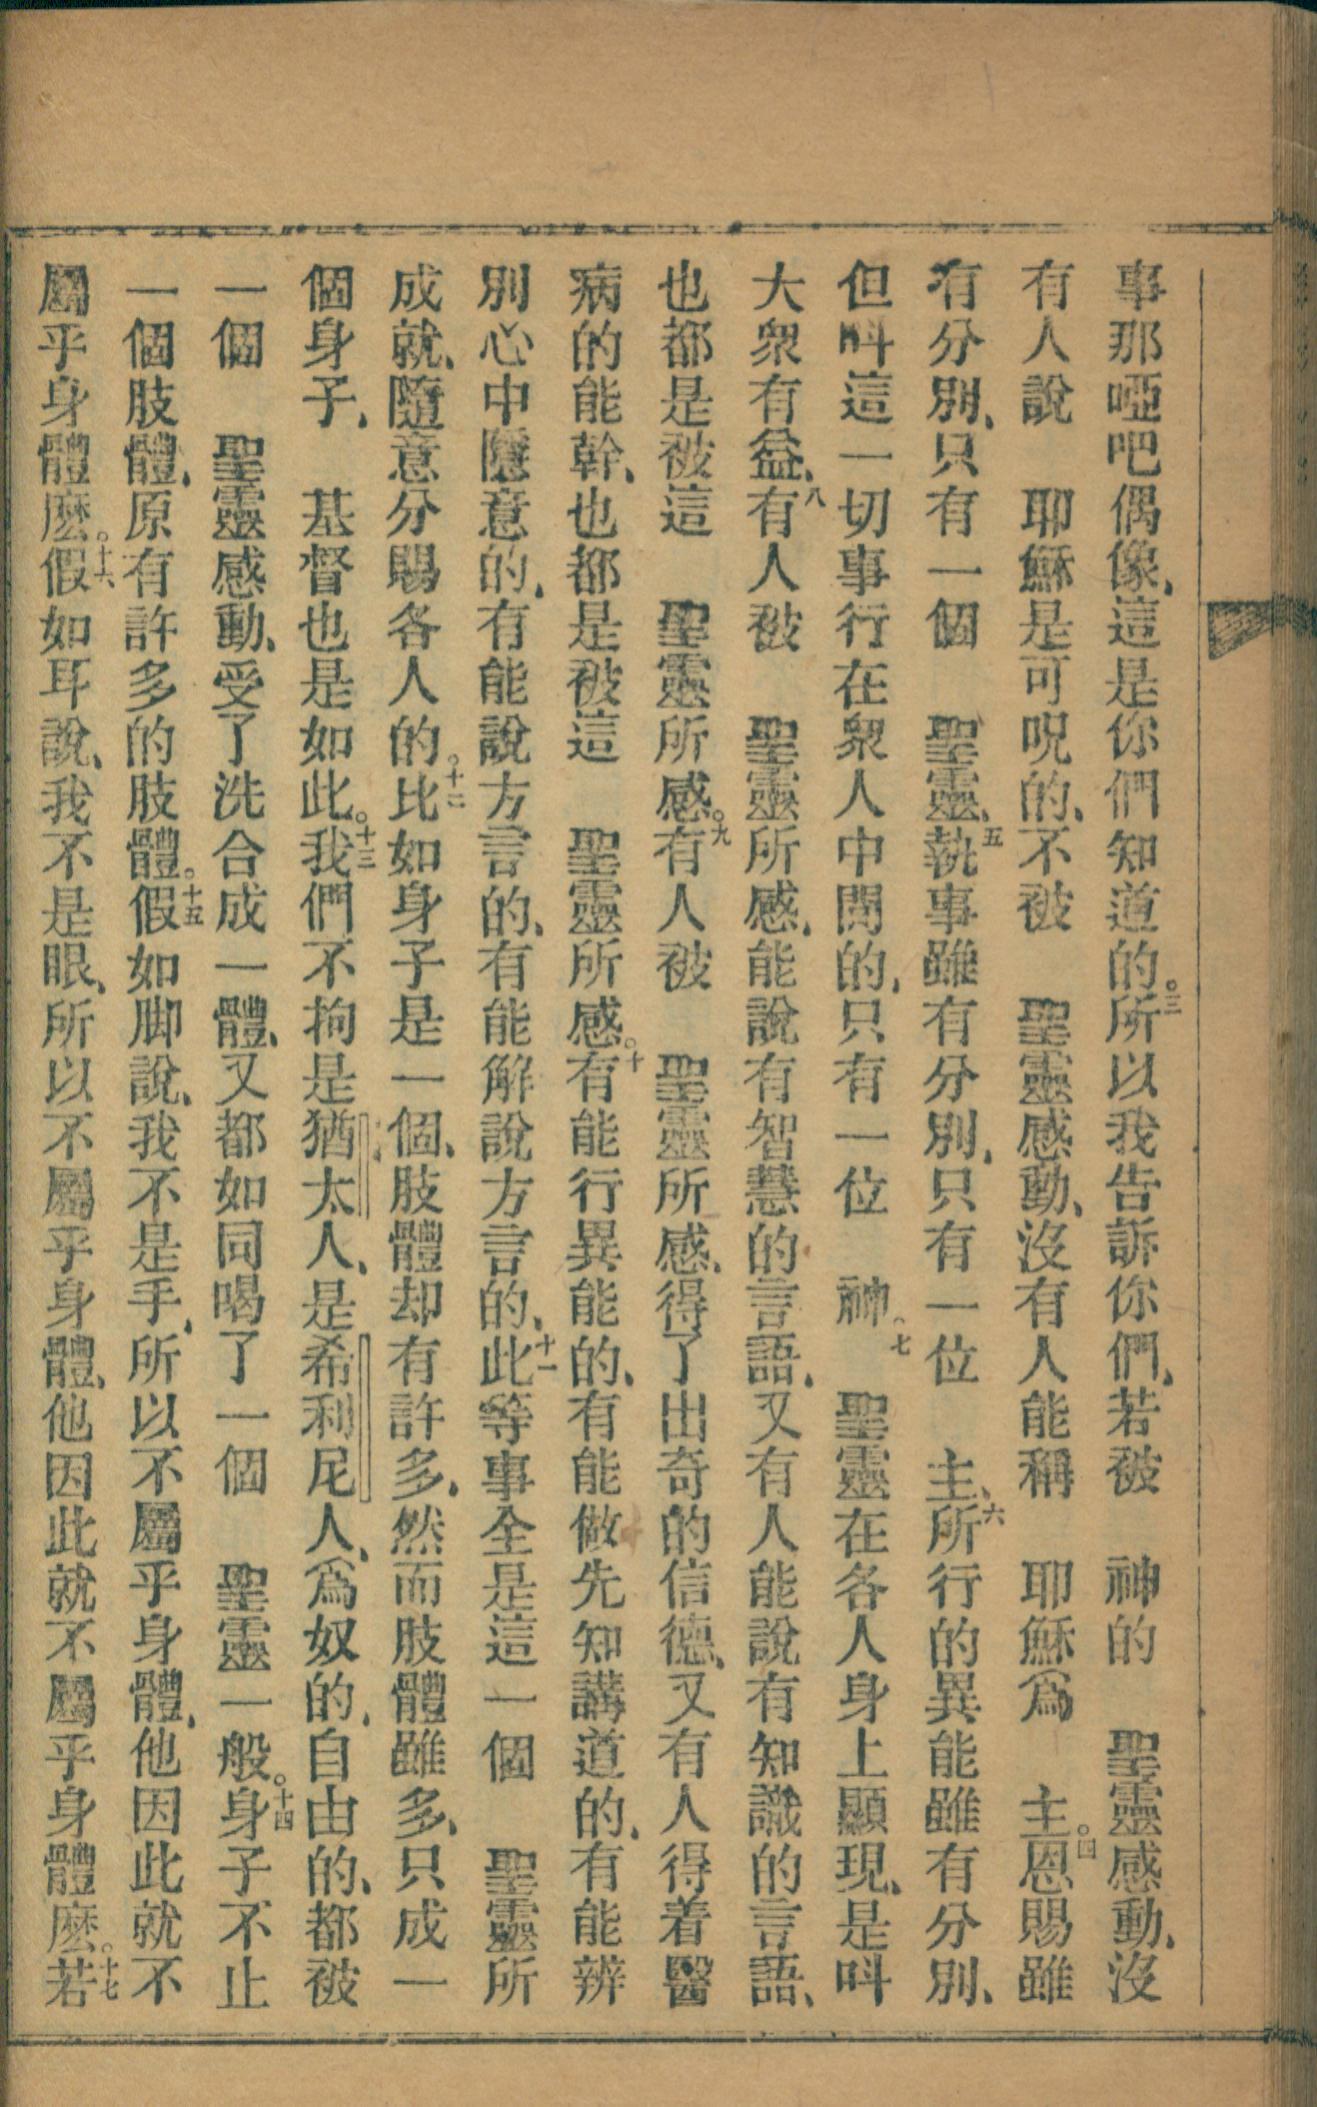 事那啞吧偶像、這是你們知道的。三所以我告訴你們、若被　神的　聖靈感動、沒
有人說　耶穌是可呪的、不被　聖靈感動、沒有人能稱　耶穌爲　主。四恩賜雖
有分別、只有一個　聖靈、五執事雖有分別、只有一位　主、六所行的異能雖有分別、
但呌這一切事行在衆人中間的、只有一位　神。七　聖靈在各人身上顯現、是呌
大衆有益、八有人被　聖靈所感、能說有智慧的言語、又有人能說有知識的言語、
也都是被這　聖靈所感。九有人被　聖靈所感、得了出奇的信德、又有人得着醫
病的能幹、也都是被這　聖靈所感。十有能行異能的、有能做先知講道的、有能辨
別心中隱意的、有能說方言的、有能解說方言的、十一此等事全是這一個　聖靈所
成就、隨意分賜各人的。十二比如身子是一個、肢體却有許多、然而肢體雖多、只成一
個身子、　基督也是如此。十三我們不拘是猶太人、是希利尼人、爲奴的、自由的、都被
一個　聖靈感動、受了洗合成一體、又都如同喝了一個　聖靈一般。十四身子不止
一個肢體、原有許多的肢體。十五假如脚說、我不是手、所以不屬乎身體、他因此就不
屬乎身體麽。十六假如耳說、我不是眼、所以不屬乎身體、他因此就不屬乎身體麽。十七若